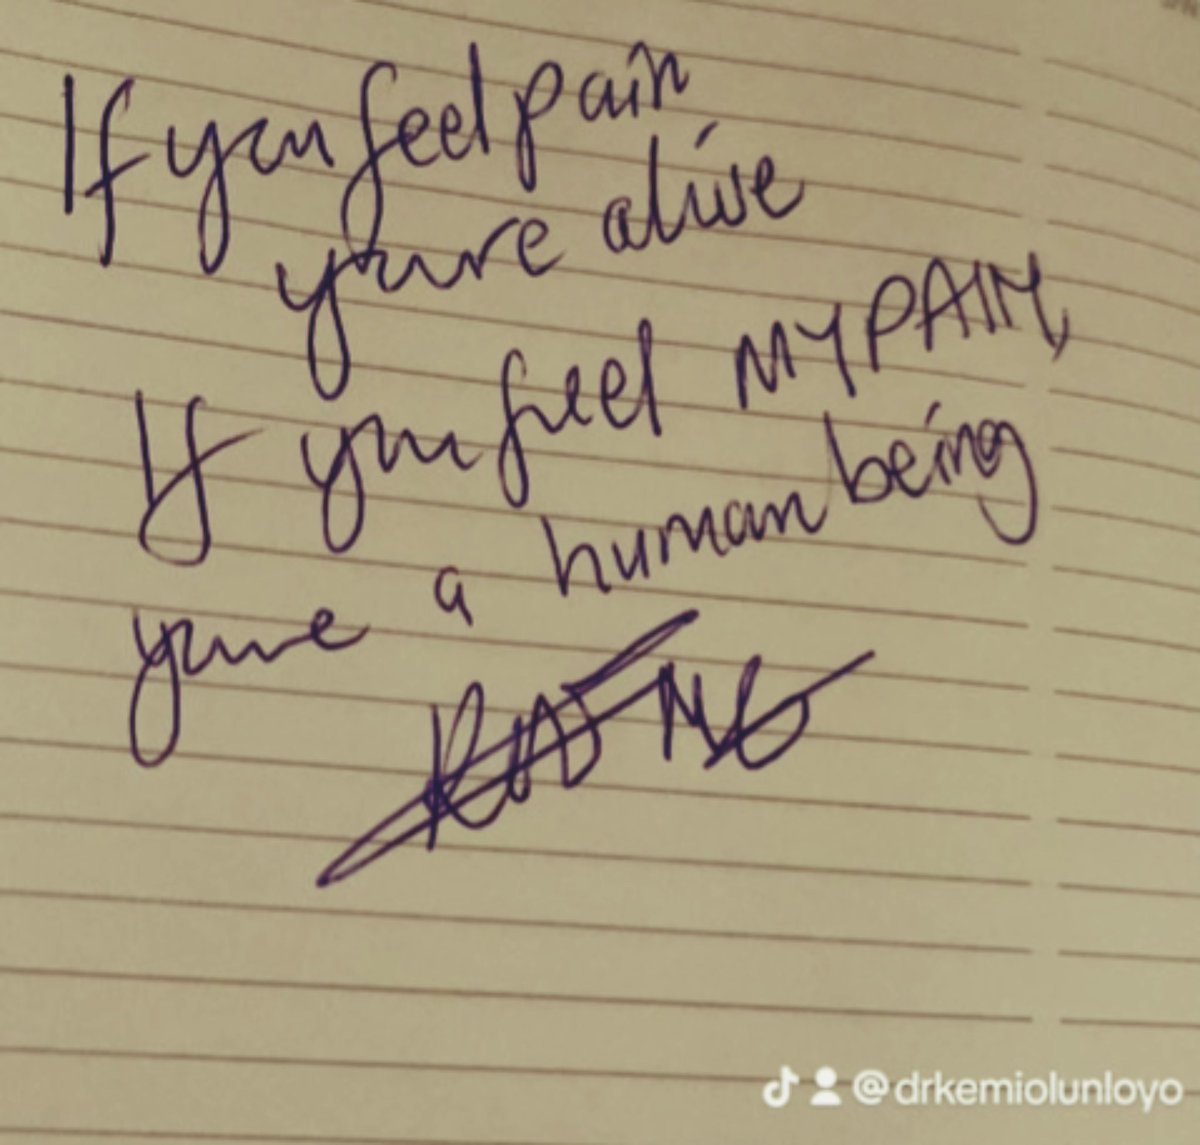 If you feel pain
youre alive
If you feel MY PAIN,
youre a human being
@drkemiolunloyo